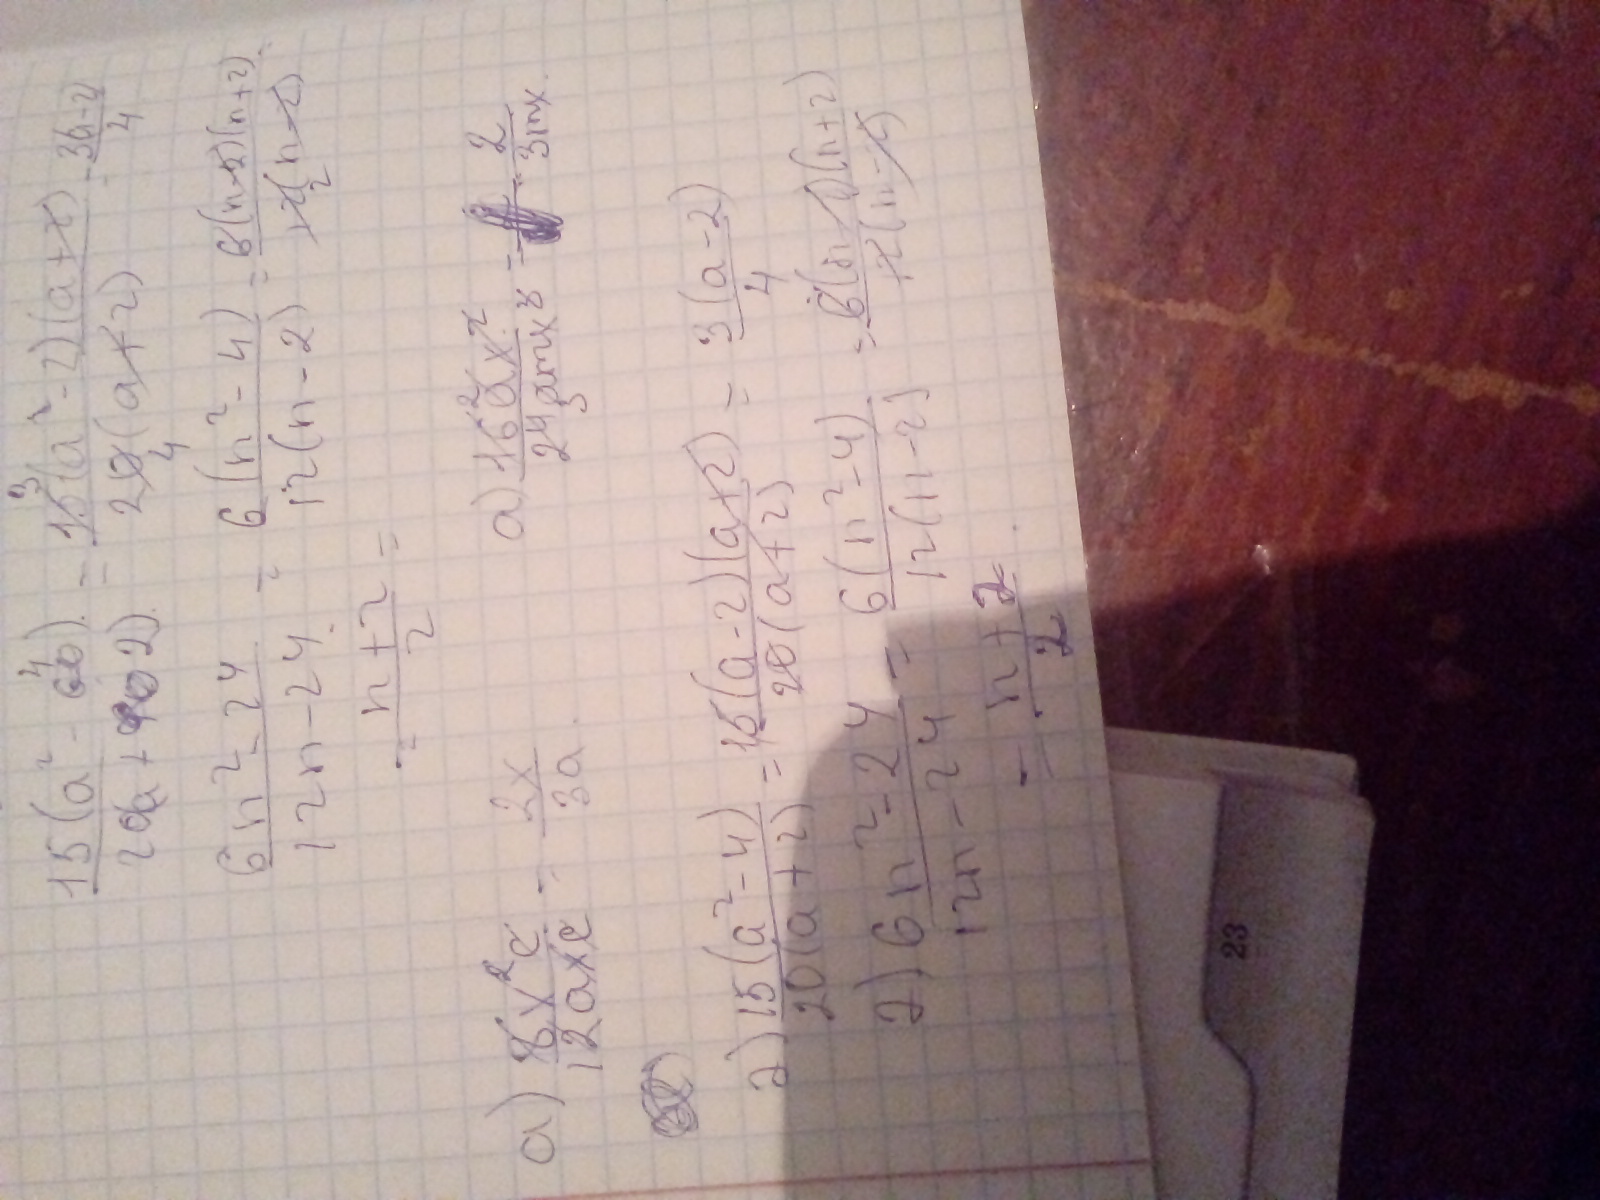 15(a² - 4) / 20(a + 2) = 15(a - 2)(a + 2) / 20(a + 2) = 3(a - 2) / 4
(6n² - 24) / (12n - 24) = 6(n² - 4) / 12(n - 2) = 6(n - 2)(n + 2) / 12(n - 2) =
= (n + 2) / 2 =
а) 8x²c / 12axc = 2x / 3a.
а) 16ax² / 24amx³ = 2 / 3mx.
г) 15(a² - 4) / 20(a + 2) = 15(a - 2)(a + 2) / 20(a + 2) = 3(a - 2) / 4
г) (6n² - 24) / (12n - 24) = 6(n² - 4) / 12(n - 2) = 6(n - 2)(n + 2) / 12(n - 2)
= (n + 2) / 2.
23